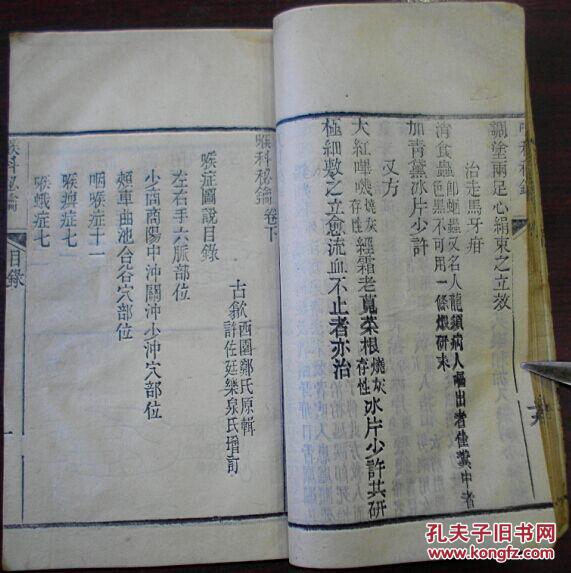 調塗兩足心絹束之立效
治走馬牙疳
消食蟲即蛔蟲又名人龍須病人嘔出者佳糞中者
色黑不可用一條煆研末
加青黛冰片少許
又方
大紅嗶嘰燒灰存性經霜老莧菜根燒灰存性冰片少許共研
極細敷之立愈流血不止者亦治
喉科秘鑰卷下
古歙西園鄭氏原輯
許佐廷樂泉氏增訂
喉症圖說目錄
左右手六脈部位
少商商陽中沖關沖少沖穴部位
頰車曲池合谷穴部位
咽喉症十一
喉痺症七
喉蛾症七
喉科秘鑰
目錄
一
孔夫子旧书网
www.kongfz.com